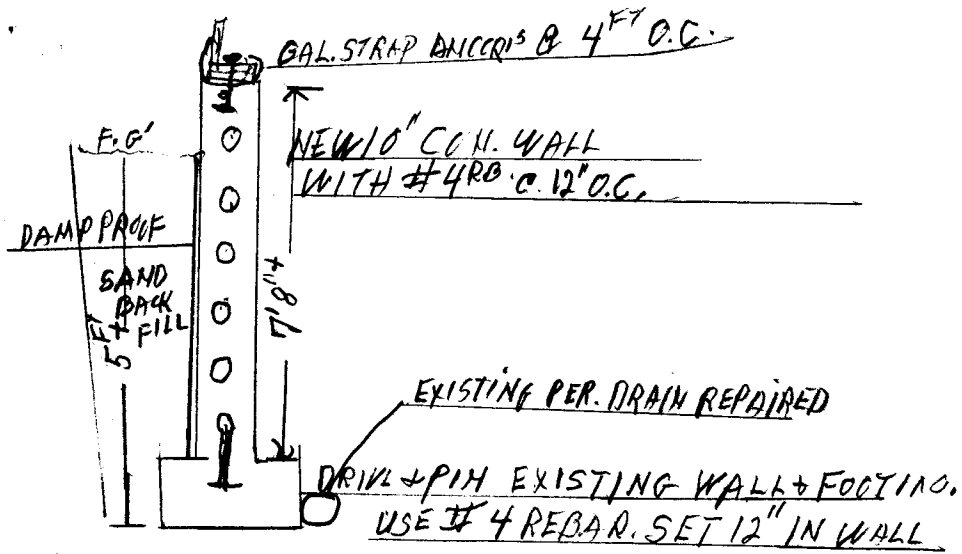 GAL. STRAP ANCCRIS @ 4FT O.C.
F.G'
NEW 10" CON. WALL
WITH #4 RB. C. 12" O.C.
DAMP PROOF
SAND
BACK
FILL
5FT±
7'8"+
EXISTING PER. DRAIN REPAIRED
DRIVL & PIN EXISTING WALL & FOOTING.
USE # 4 REBAR. SET 12" IN WALL